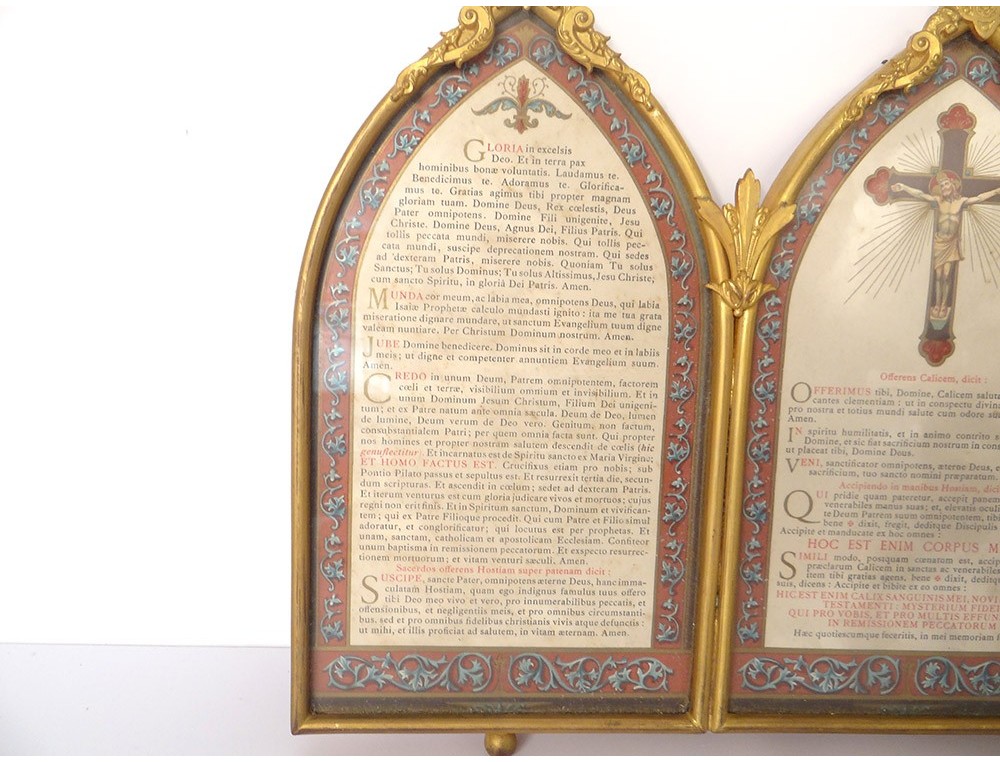 GLORIA in excelsis
Deo. Et in terra pax
hominibus bonæ voluntatis. Laudamus te.
Benedicimus te. Adoramus te. Glorifica-
mus te. Gratias agimus tibi propter magnam
gloriam tuam. Domine Deus, Rex cœlestis, Deus
Pater omnipotens. Domine Fili unigenite, Jesu
Christe. Domine Deus, Agnus Dei, Filius Patris. Qui
tollis peccata mundi, miserere nobis. Qui tollis pec-
cata mundi, suscipe deprecationem nostram. Qui sedes
ad dexteram Patris, miserere nobis. Quoniam Tu solus
Sanctus; Tu solus Dominus; Tu solus Altissimus, Jesu Christe,
cum sancto Spiritu, in gloriâ Dei Patris. Amen.
MUNDA cor meum, ac labia mea, omnipotens Deus, qui labia
Isaiæ Prophetæ calculo mundasti ignito : ita me tua grata
miseratione dignare mundare, ut sanctum Evangelium tuum digne
valeam nuntiare. Per Christum Dominum nostrum. Amen.
JUBE Domine benedicere. Dominus sit in corde meo et in labiis
meis; ut digne et competenter annuntiem Evangelium suum.
Amen.
CREDO in unum Deum, Patrem omnipotentem, factorem
cœli et terræ, visibilium omnium et invisibilium. Et in
unum Dominum Jesum Christum, Filium Dei unigeni-
tum; et ex Patre natum ante omnia sæcula. Deum de Deo, lumen
de lumine, Deum verum de Deo vero. Genitum, non factum,
consubstantialem Patri; per quem omnia facta sunt. Qui propter
nos homines et propter nostram salutem descendit de cœlis (hic
genuflectitur. Et incarnatus est de Spiritu sancto ex Maria Virgine;
ET HOMO FACTUS EST. Crucifixus etiam pro nobis; sub
Pontio Pilato passus et sepultus est. Et resurrexit tertia die, secun-
dum scripturas. Et ascendit in cœlum; sedet ad dexteram Patris.
Et iterum venturus est cum gloria judicare vivos et mortuos; cujus
regni non erit finis. Et in Spiritum sanctum, Dominum et vivifican-
tem; qui ex Patre Filioque procedit. Qui cum Patre et Filio simul
adoratur, et conglorificatur; qui locutus est per prophetas. Et
unam, sanctam, catholicam et apostolicam Ecclesiam. Confiteor
unum baptisma in remissionem peccatorum. Et exspecto resurrec-
tionem mortuorum; et vitam venturi sæculi. Amen.
Sacerdos offerens Hostiam super patenam dicit :
SUSCIPE, sancte Pater, omnipotens æterne Deus, hanc imma-
culatam Hostiam, quam ego indignus famulus tuus offero
tibi Deo meo vivo et vero, pro innumerabilibus peccatis, et
offensionibus, et negligentiis meis, et pro omnibus circumstanti-
bus, sed et pro omnibus fidelibus christianis vivis atque defunctis :
ut mihi, ef illis proficiat ad salutem, in vitam æternam. Amen.
Offerens Calicem, dicit :
OFFERIMUS tibi, Domine, Calicem saluta
cantes clementiam : ut in conspectu divin
pro nostra et totius mundi salute cum odore su
Amen.
IN spiritu humilitatis, et in animo contrito s
Domine, et sic fiat sacrificium nostrum in cons
ut placeat tibi, Domine Deus.
VENI, sanctificator omnipotens, æterne Deus, e
sacrificium, tuo sancto nomini præparatum.
Accipiendo in manibus Hostiam, dici
QUI pridie quam pateretur, accepit panem
venerabiles manus suas; et, elevatis ocul
te Deum Patrem suum omnipotentem, tibi
bene ✠ dixit, fregit, deditque Discipulis
Accipite et manducate ex hoc omnes :
HOC EST ENIM CORPUS M
SIMILI modo, posquam cœnatum est, accipi
præclarum Calicem in sanctas ac venerabiles
item tibi gratias agens, bene ✠ dixit, deditqu
suis, dicens : Accipite et bibite ex eo omnes :
HIC EST ENIM CALIX SANGUINIS MEI, NOVI
TESTAMENTI : MYSTERIUM FIDE
QUI PRO VOBIS, ET PRO MULTIS EFFUN
IN REMISSIONEM PECCATORUM
Hæc quotiescumque feceritis, in mei memoriam f